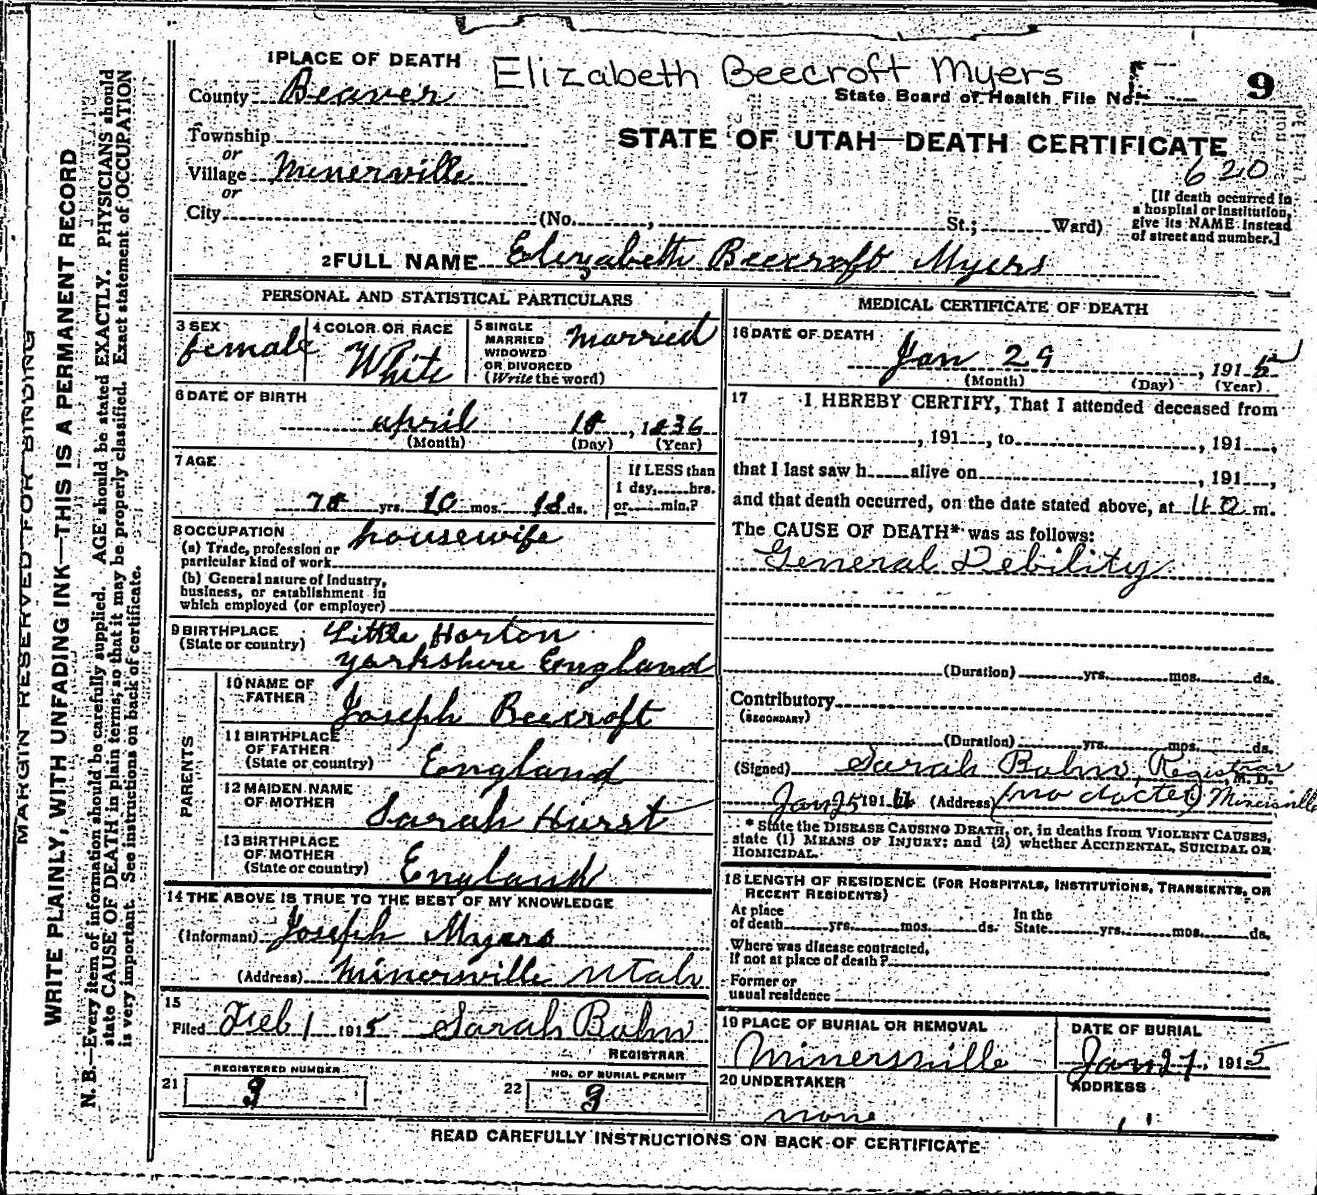 MARGIN RESERVED FOR BINDING
WRITE PLAINLY, WITH UNFADING INK—THIS IS A PERMANENT RECORD
N. B.—Every item of information should be carefully supplied. AGE should be stated EXACTLY. PHYSICIANS should
state CAUSE OF DEATH in plain terms, so that it may be properly classified. Exact statement of OCCUPATION
is very important. See instructions on back of certificate.
1 PLACE OF DEATH
Elizabeth Beecroft Myers
County Beaver
State Board of Health File No. 9
Township
STATE OF UTAH—DEATH CERTIFICATE
or
620
Village Minersville
or
[If death occurred in
a hospital or institution,
give its NAME instead
of street and number.]
City (No. , St.; Ward)
2 FULL NAME Elizabeth Beecroft Myers
PERSONAL AND STATISTICAL PARTICULARS
3 SEX female
4 COLOR OR RACE White
5 SINGLE
MARRIED
WIDOWED
OR DIVORCED
(Write the word)
married
6 DATE OF BIRTH
april 10, 1836
(Month) (Day) (Year)
7 AGE
78 yrs. 10 mos. 18 ds.
If LESS than
1 day, hrs.
or min.?
8 OCCUPATION
(a) Trade, profession or
particular kind of work housewife
(b) General nature of Industry,
business, or establishment in
which employed (or employer)
9 BIRTHPLACE
(State or country)
Little Horton
Yorkshire England
PARENTS
10 NAME OF
FATHER Joseph Beecroft
11 BIRTHPLACE
OF FATHER
(State or country) England
12 MAIDEN NAME
OF MOTHER Sarah Hurst
13 BIRTHPLACE
OF MOTHER
(State or country) England
14 THE ABOVE IS TRUE TO THE BEST OF MY KNOWLEDGE
(Informant) Joseph Myers
(Address) Minersville Utah
15
Filed Feb 1 1915 Sarah
REGISTRAR
21 REGISTERED NUMBER
22 NO. OF BURIAL PERMIT
MEDICAL CERTIFICATE OF DEATH
16 DATE OF DEATH
Jan , 191
(Month) (Day) (Year)
17 I HEREBY CERTIFY, That I attended deceased from
, 191 , to , 191 ,
that I last saw h alive on , 191 ,
and that death occurred, on the date stated above, at m.
The CAUSE OF DEATH* was as follows:
General Debility
(Duration) yrs. mos. ds.
Contributory
(SECONDARY)
(Duration) yrs. mos. ds.
(Signed) Sarah Registrar
M. D.
Jan 191 (Address) (no doctor) Minersville
* State the DISEASE CAUSING DEATH, or, in deaths from VIOLENT CAUSES,
state (1) MEANS OF INJURY; and (2) whether ACCIDENTAL, SUICIDAL OR
HOMICIDAL.
18 LENGTH OF RESIDENCE (FOR HOSPITALS, INSTITUTIONS, TRANSIENTS, OR
RECENT RESIDENTS)
At place
of death yrs. mos. ds.
In the
State yrs. mos. ds.
Where was disease contracted,
if not at place of death?
Former or
usual residence
19 PLACE OF BURIAL OR REMOVAL
Minersville
DATE OF BURIAL
Jan 27, 1915
20 UNDERTAKER
none
ADDRESS
READ CAREFULLY INSTRUCTIONS ON BACK OF CERTIFICATE